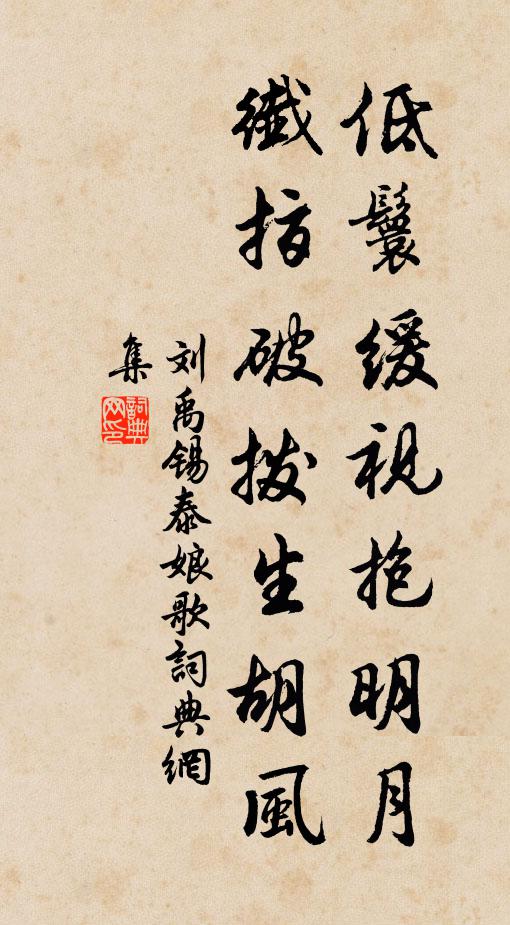 低鬟緩視抱明月
纖指破撥生胡風
刘禹锡泰娘歌詞典網
集
詞典網印